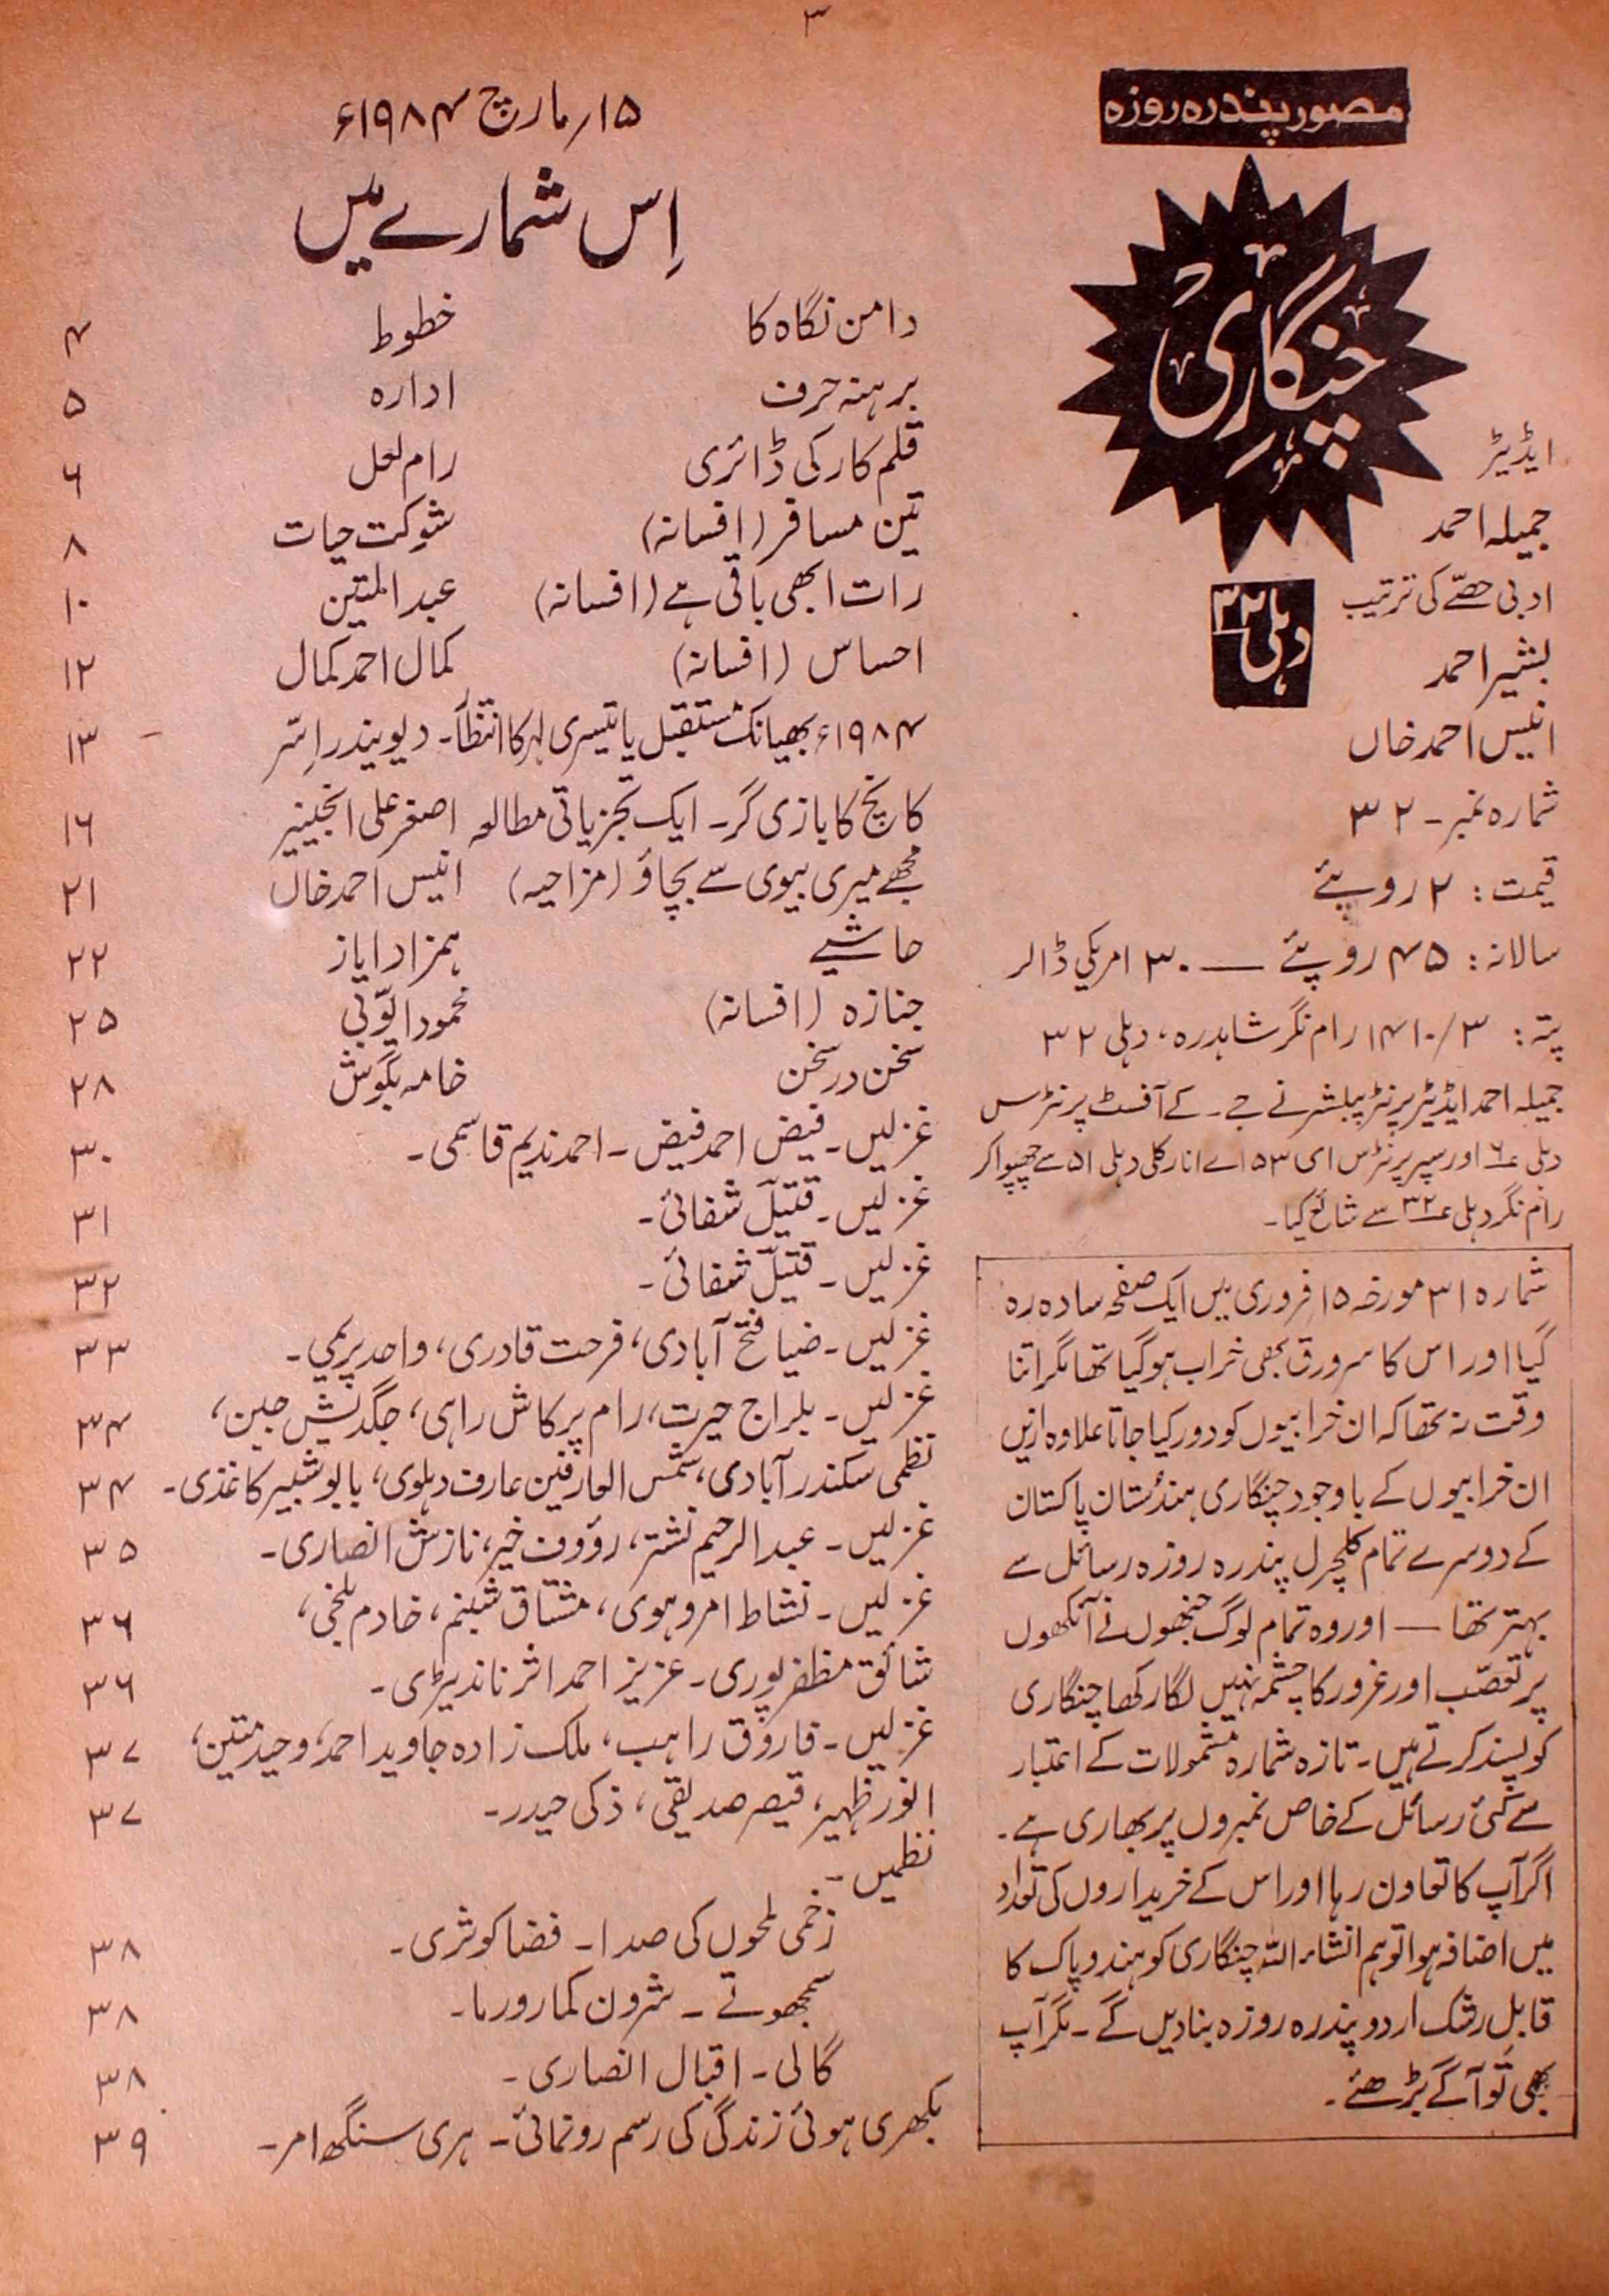 ۳
مصور پندرہ روزہ
چنگاری
دہلی ۳۲
ایڈیٹر
جمیلہ احمد
ادبی حصّے کی ترتیب
بشیر احمد
انیس احمد خاں
شمارہ نمبر۔ ۳۲
قیمت: ۲ روپئے
سالانہ: ۴۵ روپئے — ۳۰ امریکی ڈالر
پتہ: ۱۴۱۰/۳ رام نگر شاہدرہ، دہلی ۳۲
جمیلہ احمد ایڈیٹر پرنٹر پبلشر نے جے۔ کے آفسٹ پرنٹرس
دہلی ۶ اور سپر پرنٹرس ای ۱۵۳ اے انارکلی دہلی ۵۱ سے چھپوا کر
رام نگر دہلی ۳۲ سے شائع کیا۔
شمارہ ۳۱ مورخہ ۱۵ فروری میں ایک صفحہ سادہ رہ
گیا اور اس کا سرورق بھی خراب ہوگیا تھا مگر اتنا
وقت نہ تھا کہ ان خرابیوں کو دور کیا جاتا علاوہ ازیں
ان خرابیوں کے باوجود چنگاری ہندستان پاکستان
کے دوسرے تمام کلچرل پندرہ روزہ رسائل سے
بہتر تھا — اور وہ تمام لوگ جنھوں نے آنکھوں
پر تعصّب اور غرور کا چشمہ نہیں لگا رکھا چنگاری
کو پسند کرتے ہیں۔ تازہ شمارہ مشمولات کے اعتبار
سے کئی رسائل کے خاص نمبروں پر بھاری ہے۔
اگر آپ کا تعاون رہا اور اس کے خریداروں کی تعداد
میں اضافہ ہوا تو ہم انشاء اللہ چنگاری کو ہند و پاک کا
قابلِ رشک اردو پندرہ روزہ بنا دیں گے۔ مگر آپ
بھی تو آگے بڑھئے۔
۱۵/ مارچ ۱۹۸۴ء
اِس شمارے میں
دامن نگاہ کا خطوط ۴
برہنہ حرف ادارہ ۵
قلم کار کی ڈائری رام لعل ۶
تین مسافر (افسانہ) شوکت حیات ۸
رات ابھی باقی ہے (افسانہ) عبدالمتین ۱۰
احساس (افسانہ) کمال احمد کمال ۱۲
۱۹۸۴ء بھیانک مستقبل یا تیسری لہر کا انتظار۔ دیویندر اِسّر ۱۳
کانچ کا بازی گر۔ ایک تجزیاتی مطالعہ اصغر علی انجینیر ۱۶
مجھے میری بیوی سے بچاؤ (مزاحیہ) انیس احمد خاں ۲۱
حاشیے ہمزاد ایاز ۲۲
جنازہ (افسانہ) محمود ایوّبی ۲۵
سخن در سخن خامہ بگوش ۲۸
غزلیں۔ فیض احمد فیض۔ احمد ندیم قاسمی۔ ۳۰
غزلیں۔ قتیلؔ شفائی۔ ۳۱
غزلیں۔ قتیلؔ شفائی۔ ۳۲
غزلیں۔ ضیا فتح آبادی، فرحت قادری، واحد پریمی۔ ۳۳
غزلیں۔ بلراج حیرت، رام پرکاش راہی، جگدیش جین، ۳۴
نظمی سکندر آبادی، شمس العارفین عارف دہلوی، بابو شبیر کاغذی۔ ۳۴
غزلیں۔ عبدالرحیم نشتر، رؤوف خیر، نازش انصاری۔ ۳۵
غزلیں۔ نشاط امروہوی، مشتاق شبنم، خادم بلخی، ۳۶
شائق مظفر پوری۔ عزیز احمد اثر ناندیڑی۔ ۳۶
غزلیں۔ فاروق راہب، ملک زادہ جاوید احمد، وحید متین، ۳۷
انور ظہیر، قیصر صدیقی، ذکی حیدر۔ ۳۷
نظمیں۔
زخمی لمحوں کی صدا۔ فضا کوثری۔ ۳۸
سمجھوتے۔ شرون کمار ورما۔ ۳۸
گالی۔ اقبال انصاری۔ ۳۸
بکھری ہوئی زندگی کی رسم رونمائی۔ ہری سنگھ امر۔ ۳۹